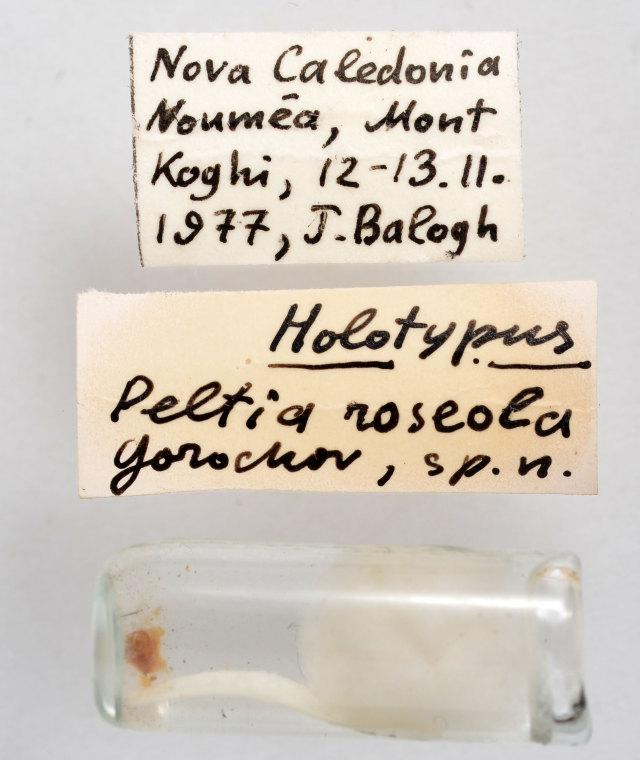 Nova Caledonia
Nouméa, Mont
Koghi, 12-13.II.
1977, J. Balogh
Holotypus
Peltia roseola
Gorochov, sp. n.